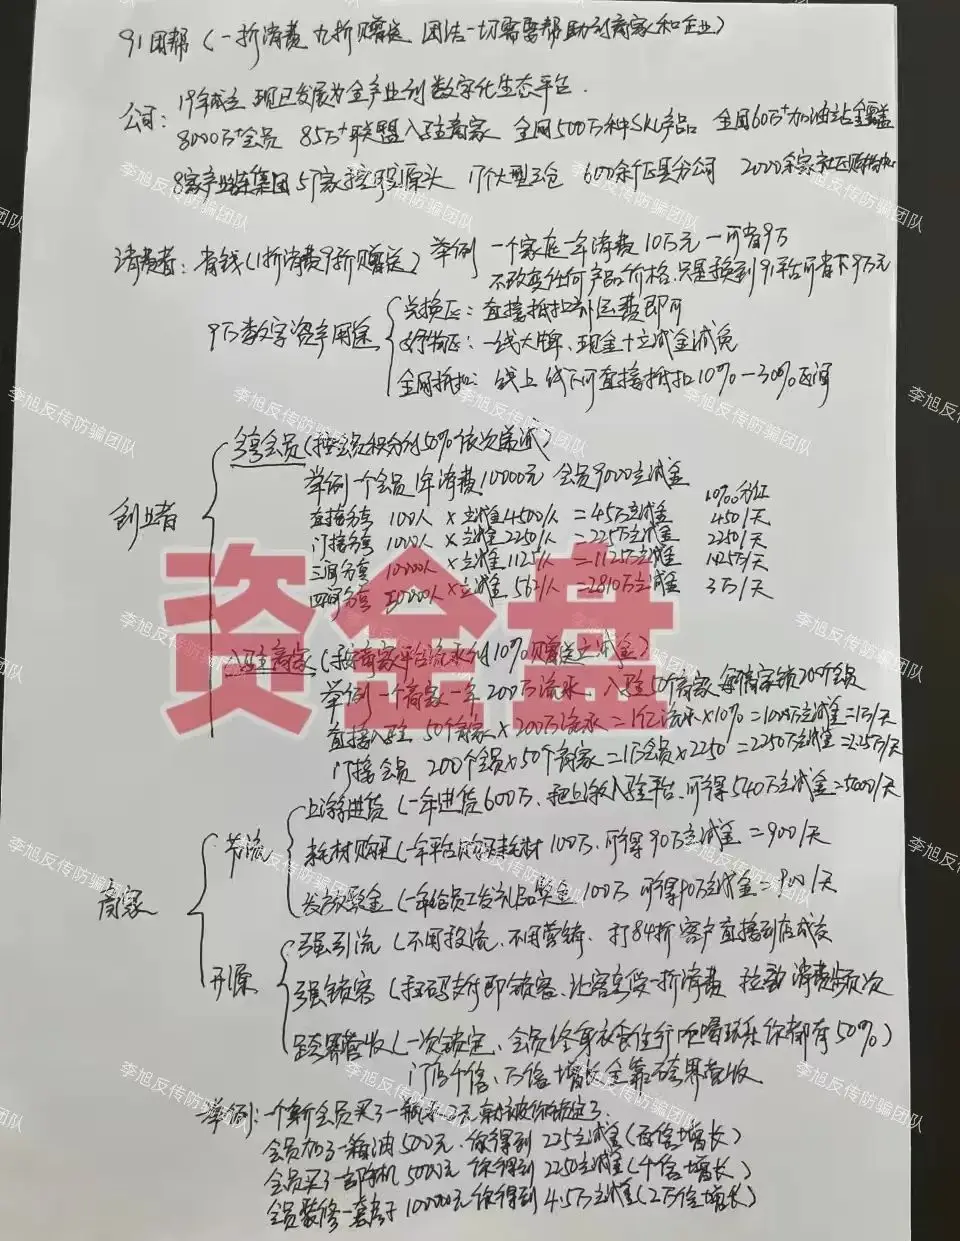 91团帮(一折消费 九折赠送 团结一切需要帮助到商家和企业)
公司: 19年成立 现已发展为全产业到数字化生态平台.
8000万+会员 85万+联盟入驻商家 全网500万种SKU产品 全国60万+加油站全覆盖
8家产业链集团 57家控股源头 17个大型云仓 600余个区县分公司 2000余家社区购物中心
消费者: 省钱(1折消费9折赠送) 举例 一个家庭一年消费10万元一可省9万
不改变任何产品价格.只是换到91平台可省下9万元
9万数字资产用途
兑换区: 直接抵扣补运费即可
好物区: 一线大牌、现金+立减金减免
全网抵扣: 线上 线下可直接抵扣10%-30%区间
创业者
分享会员(按会员积分的50%依次递减)
举例 一个会员1年消费10000元 会员9000立减金
直接分享 100人 × 立减金4500/人 = 45万立减金 450/天
间接分享 1000人 × 立减金2250/人 = 225万立减金 2250/天
三间分享 10000人 × 立减金1125/人 = 1125万立减金 1.125万/天
四间分享 50000人 × 立减金 562/人 = 2810万立减金 3万/天
入驻商家(按商家平台流水的10%赠送立减金)
举例 一个商家一年200万流水 入驻50个商家 每个商家锁200个会员
直接入驻 50个商家 × 200万流水 = 1亿流水×10% = 1000万立减金=1万/天
间接会员 200个会员×50个商家 = 1万会员×2250 = 2250万立减金=2.25万/天
商家
节流
上游进货(一年进货600万、把上游入驻平台、可得540万立减金=5000/天
耗材购买(一年平台购买耗材100万、可得90万立减金 = 900/天
发放奖金(一年给员工发礼品奖金100万 可得90万立减金=900/天
开源
强引流(不用投流、不用营销、打84折客户直接到店成交
强锁客(扫码支付即锁客、让客享受一折消费 拉动消费频次
跨界营收(一次锁定、会员终身衣食住行吃喝玩乐你都有50%)
门店千倍、万倍增长全靠跨界营收
举例: 一个新会员买了一瓶水2元 就被你锁定了.
会员加了一箱油500元.你得到 225立减金(百倍增长)
会员买了一部手机 5000元 你得到 2250立减金(千倍增长)
会员装修一套房子 100000元你得到 4.5万立减金(2万倍增长)
资金盘
李旭反传防骗团队
李旭反传防骗团队
李旭反传防骗团队
李旭反传防骗团队
李旭反传防骗团队
李旭反传防骗团队
李旭反传防骗团队
李旭反传防骗团队
李旭反传防骗团队
李旭反传防骗团队
李旭反传防骗团队
李旭反传防骗团队